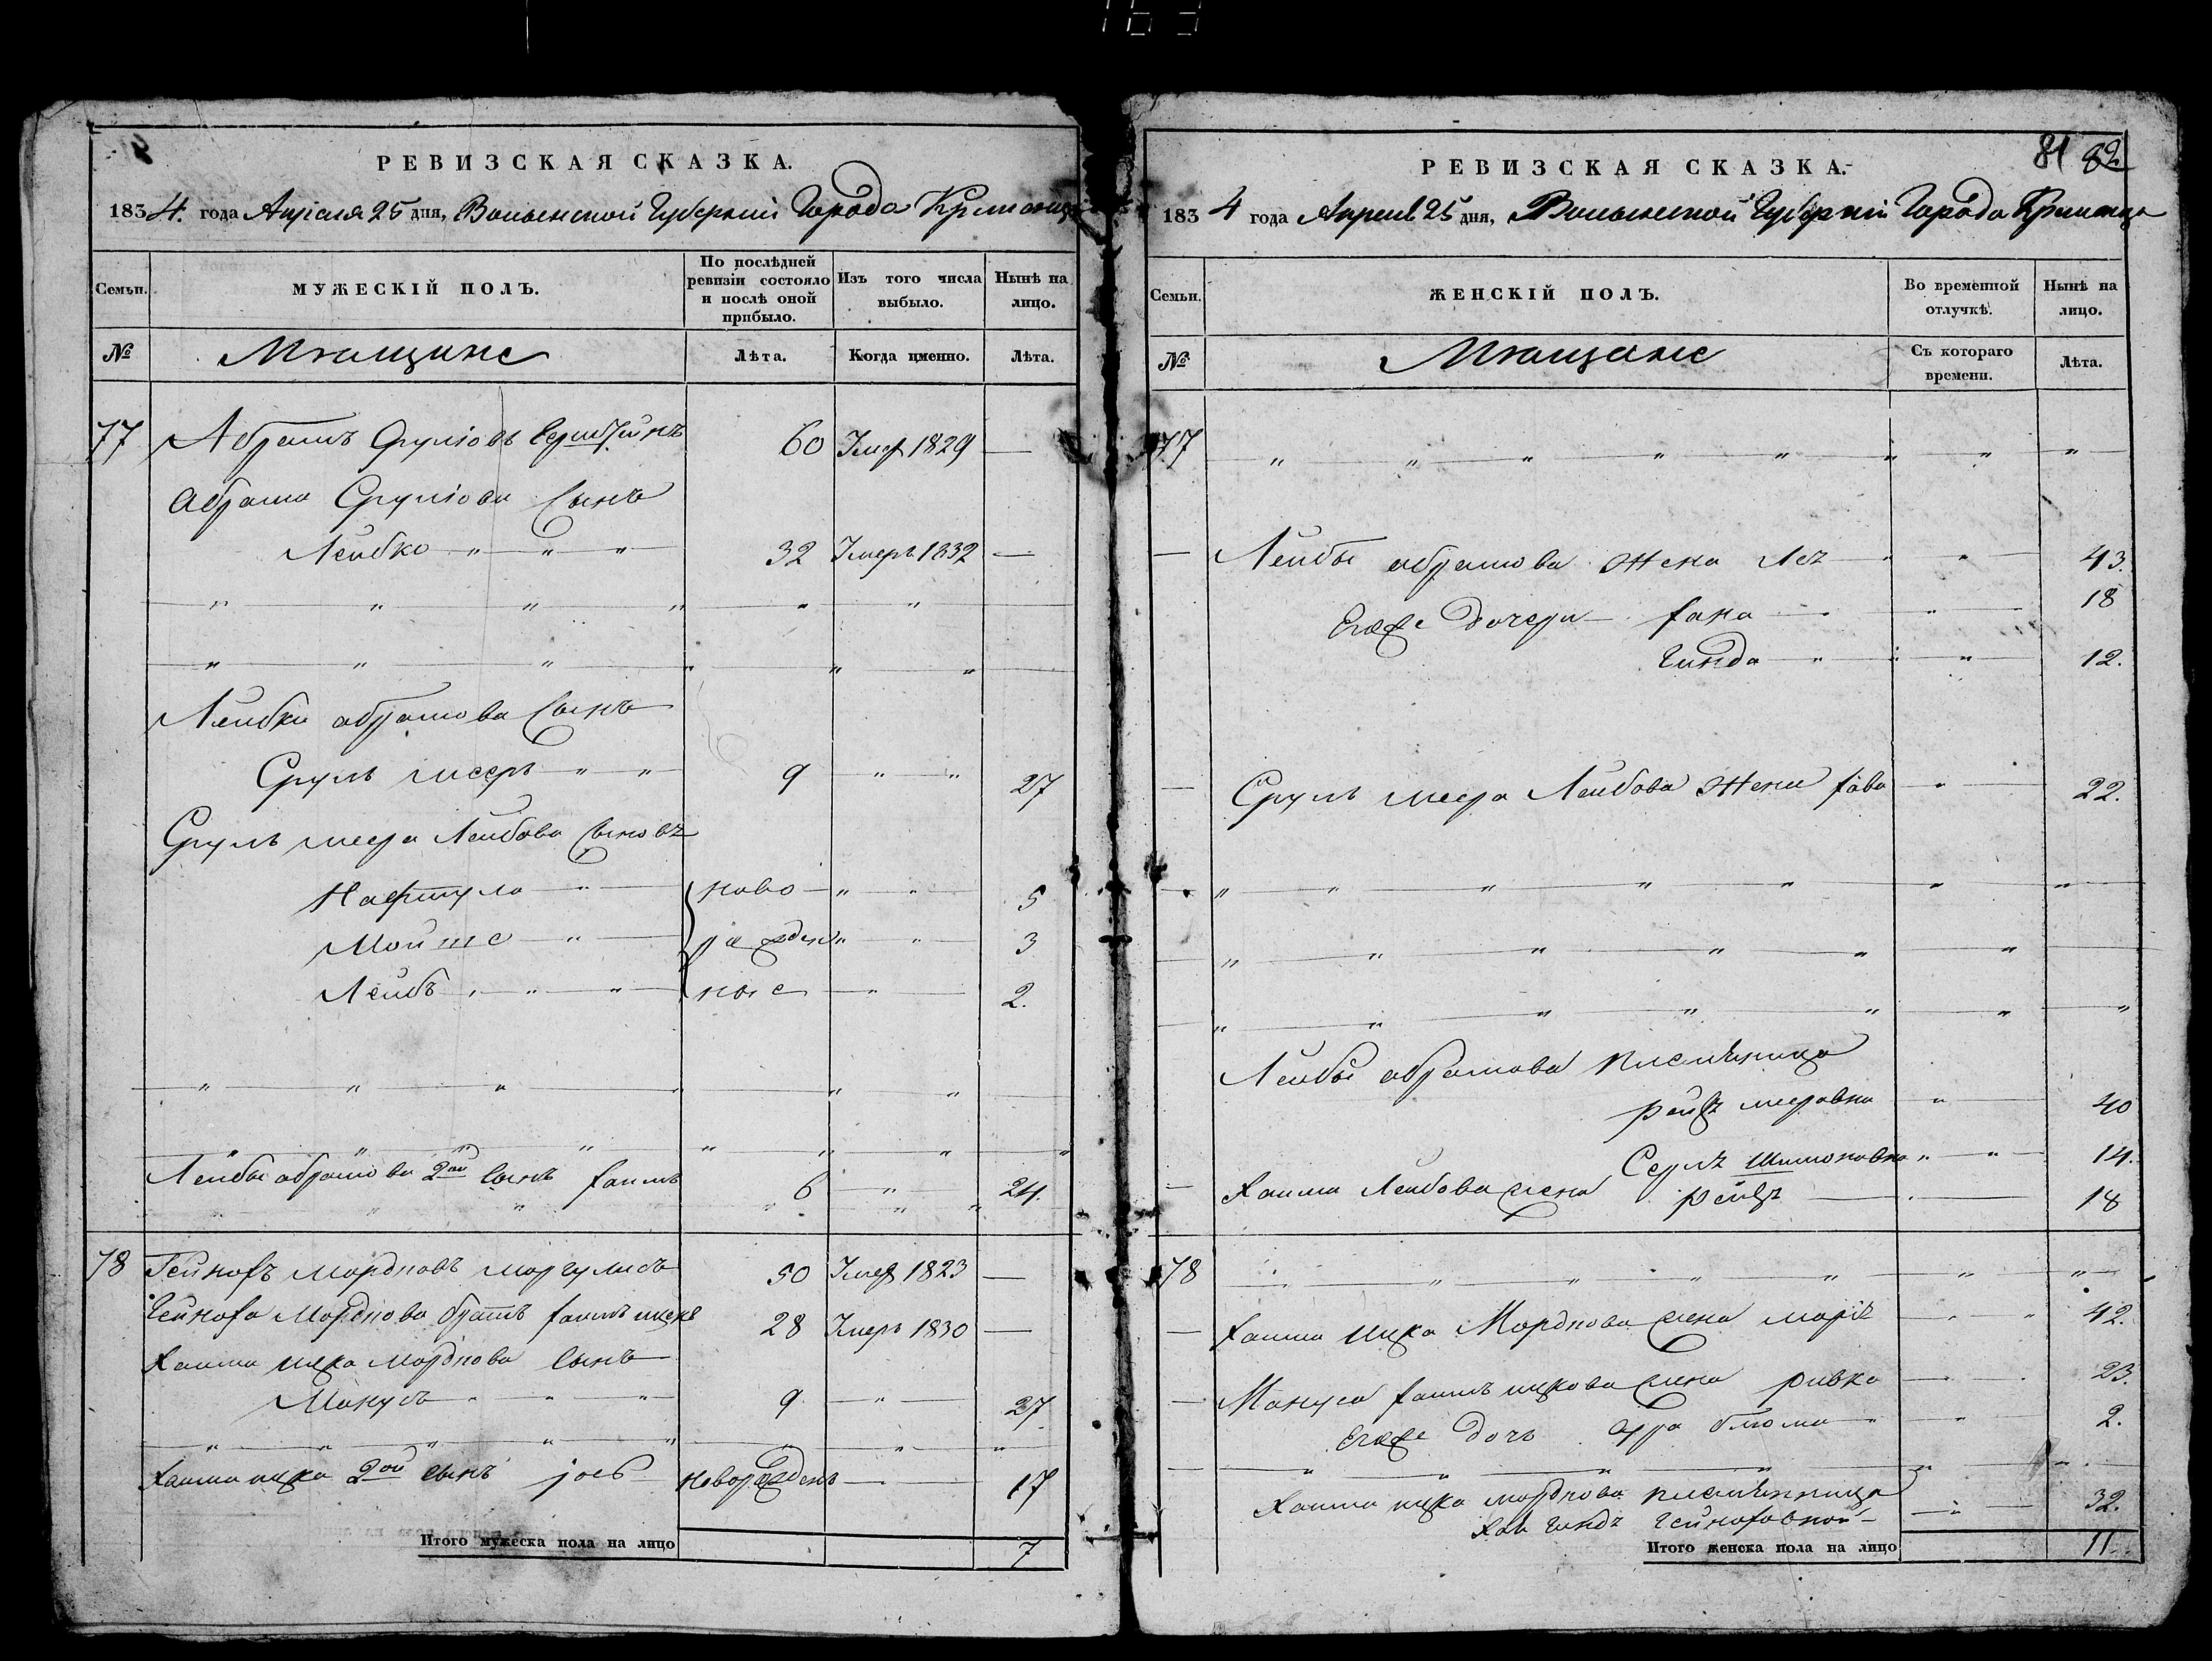 163
РЕВИЗСКАЯ СКАЗКА.
1834. года Апреля 25 дня, Волынской Губернии Города Кременца
Семьи.
МУЖЕСКІЙ ПОЛЪ.
По послѣдней ревизіи состояло и послѣ оной прибыло.
Изъ того числа выбыло.
Нынѣ на лицо.
№
Мѣщане
Лѣта.
Когда именно.
Лѣта.
77 Абрамъ Сруліовъ 60 Умер 1829 —
Абрама Сруліова Сынъ
Лейбко " " " 32 Умеръ 1832 —
Лейбки абрамова Сынъ
Сруль меер " " 9 " " 27
Сруль меера Лейбова Сыновѣ
Нафтула " ново " " 5
Мойше " рожден " " 3
Лейбъ " " " ные " 2.
Лейбы абрамова 2ой Сынъ хаимъ 6 " 24.
78 Гейнохъ Мордковъ моргулисъ 50 Умер 1823 —
Гейноха Мордкова братъ хаимъ ицко 28 Умеръ 1830 —
Хаима ицка мордкова Сынъ
Манусъ " " " 9 " 27
Хаима ицка 2ой сынъ іось новорожденъ 17
Итого мужеска пола на лицо 7
81 82
РЕВИЗСКАЯ СКАЗКА.
1834 года Апреля 25 дня, Волынской Губерніи Города Кременца
Семьи.
ЖЕНСКІЙ ПОЛЪ.
Во временной отлучкѣ.
Нынѣ на лицо.
№
Мѣщане
Съ котораго времени.
Лѣта.
77 " " " " " " " "
Лейбы абрамова Жена Леѣ " " 43.
Егоже дочери хана " " 18
Гинда " " " 12.
Сруль меера Лейбова Жена хава " 22.
Лейбы абрамова племѣница
рейзѣ мееровна " 40
Серлѣ Шимоновна " " 14.
Хаима Лейбова жена рейзѣ " 18
78 " " " " " " "
Хаима ицка Мордкова жена маріѣ " " 42.
Мануса хаимъ ицкова жена ривка " " 23.
Егоже дочь блюма " " 2.
Хаима ицка мордкова племѣнница
хая гиндѣ Гейноховной " 32.
Итого женска пола на лицо 11.